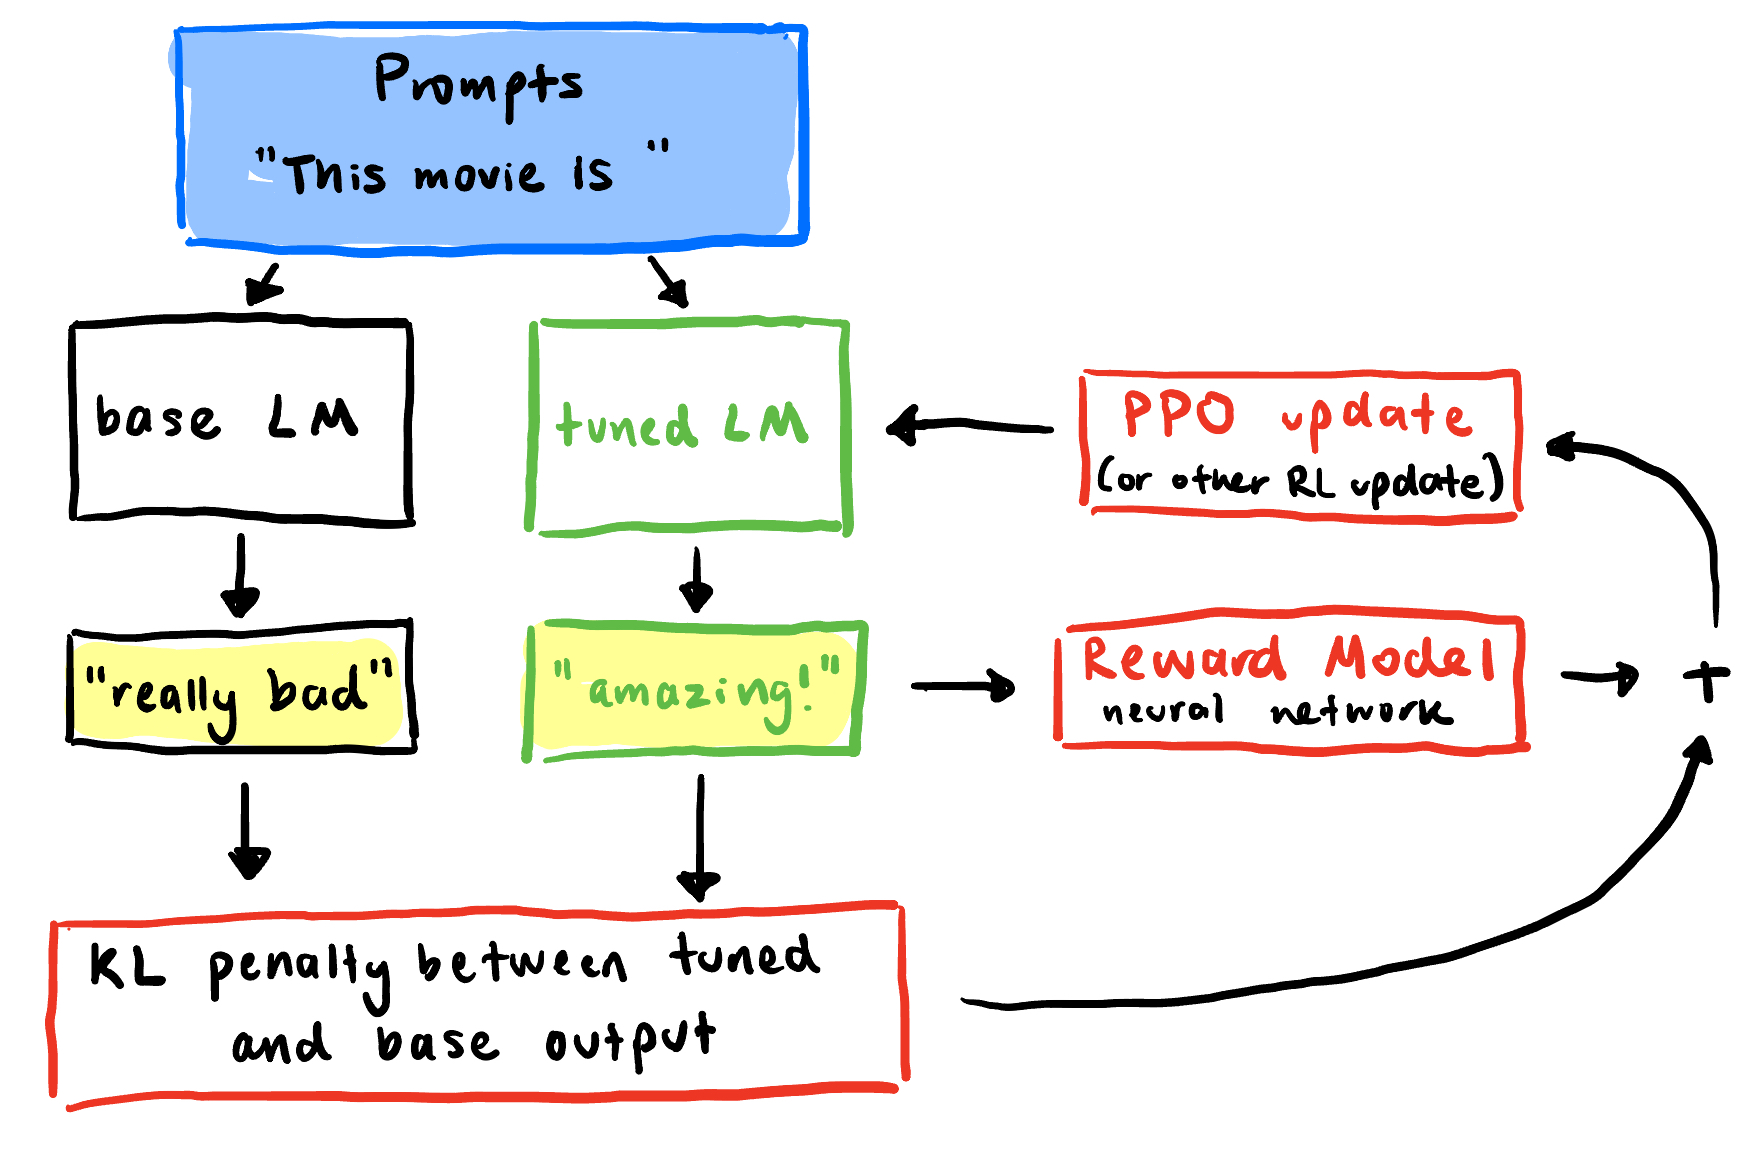 Prompts
"This movie is "
base LM
tuned LM
PPO update
(or other RL update)
"really bad"
"amazing!"
Reward Model
neural network
+
KL penalty between tuned
and base output